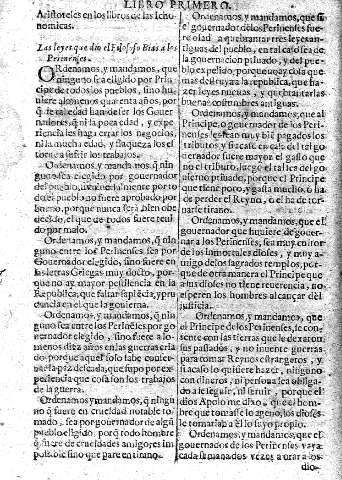 LIBRO PRIMERO.
Aristoteles en los libros de las Icho-
nomicas.
Las leyes que dio el Filosofo Bias a los
Perinenses.
ORdenamos, y mandamos, que
ninguno sea eligido por Prin-
cipe de todos los pueblos, sino hu-
uiere alomenos quarenta años, por
q̃ de tal edad han de ser los Gouer-
nadores, q̃ ni la poca edad, y expe-
riencia les haga errar los negocios,
ni la mucha edad, y flaqueza los es
torue a sufrir los trabajos.
Ordenamos, y mandamos, q̃ nin-
guno sea eligido por gouernador
del pueblo,
el pueblo no fuere aprobado por
bueno, porque nunca será bien obe
decido, el que de todos fuere teni-
do por malo.
Ordenamos, y mandamos, q̃ nin
guno entre los Perinenses sea Go-
uernador eligido, sino fuere en
las letras Griegas muy docto, por-
que no ay mayor pestilencia en la
Republica, que faltar sapiẽcia, y pru
dencia en el que la gouierna.
Ordenamos, y mandamos, q̃ nin
guno sea entre los Perinẽses por go
uernador eligido, sino fuere alo-
menos diez años en las guerras cria
do, porque aquel solo sabe conser-
uar la paz deseada, que supo por ex-
periencia que cosa son los trabajos
de la guerra.
Ordenamos, y mandamos, q̃ ningu
no q̃ fuere en crueldad notable to-
mado, sea por gouernador de algũ
pueblo eligido, porq̃ todo hombre
q̃ fuere de crueldades amigo, es im
possible sino que pare en tirano.
Ordenamos, y mandamos, que si
el gouernador de los Perinenses fue-
re osado a quebrantar tres leyes an-
tiguas del pueblo, en tal caso sea de
la gouernacion priuado, y del pue-
blo expelido, porque no ay cosa que
mas destruya la republica, que ha-
zer leyes nueuas, y quebrantar las
buenas costumbres antiguas.
Ordenamos, y mandamos, que al
Principe, o gouernador de los Peri-
nenses le sean muy biẽ pagados los
tributos, y si acaso en casa del tal go
uernador fuere mayor el gasto que
no el tributo, luego el tal sea del go
uierno priuado, porque el Principe
que tiene poco, y gasta mucho, o ha
de perder el Reyno, o el ha de tor-
narse tirano.
Ordenamos, y mandamos, que el
gouernador que huuiere de gouer-
nar a los Perinenses, sea muy cultor
de los inmortales dioses, y muy a-
migo de los sagrados templos, por-
que de otra manera el Principe que
a sus dioses no tiene reuerencia, no
esperen los hombres alcançar del
justicia.
Ordenamos, y mandamos, que
el Principe de los Perinenses, se con-
tente con las tierras que le dexaron
sus passados, y no inuente guerras
para tomar Reynos estrangeros, y
si acaso lo quisiere hazer, ninguno
con dineros, ni persona sea obliga-
do a le seguir, ni seruir, porque el
dios Apolo me dixo, que el hom-
bre que tomasse lo ageno, los dioses
le tomarian a èl lo suyo proprio.
Ordenamos, y mandamos, que el
gouernador de los Perinenses vaya
cada semana dos vezes a orar a los
dio-